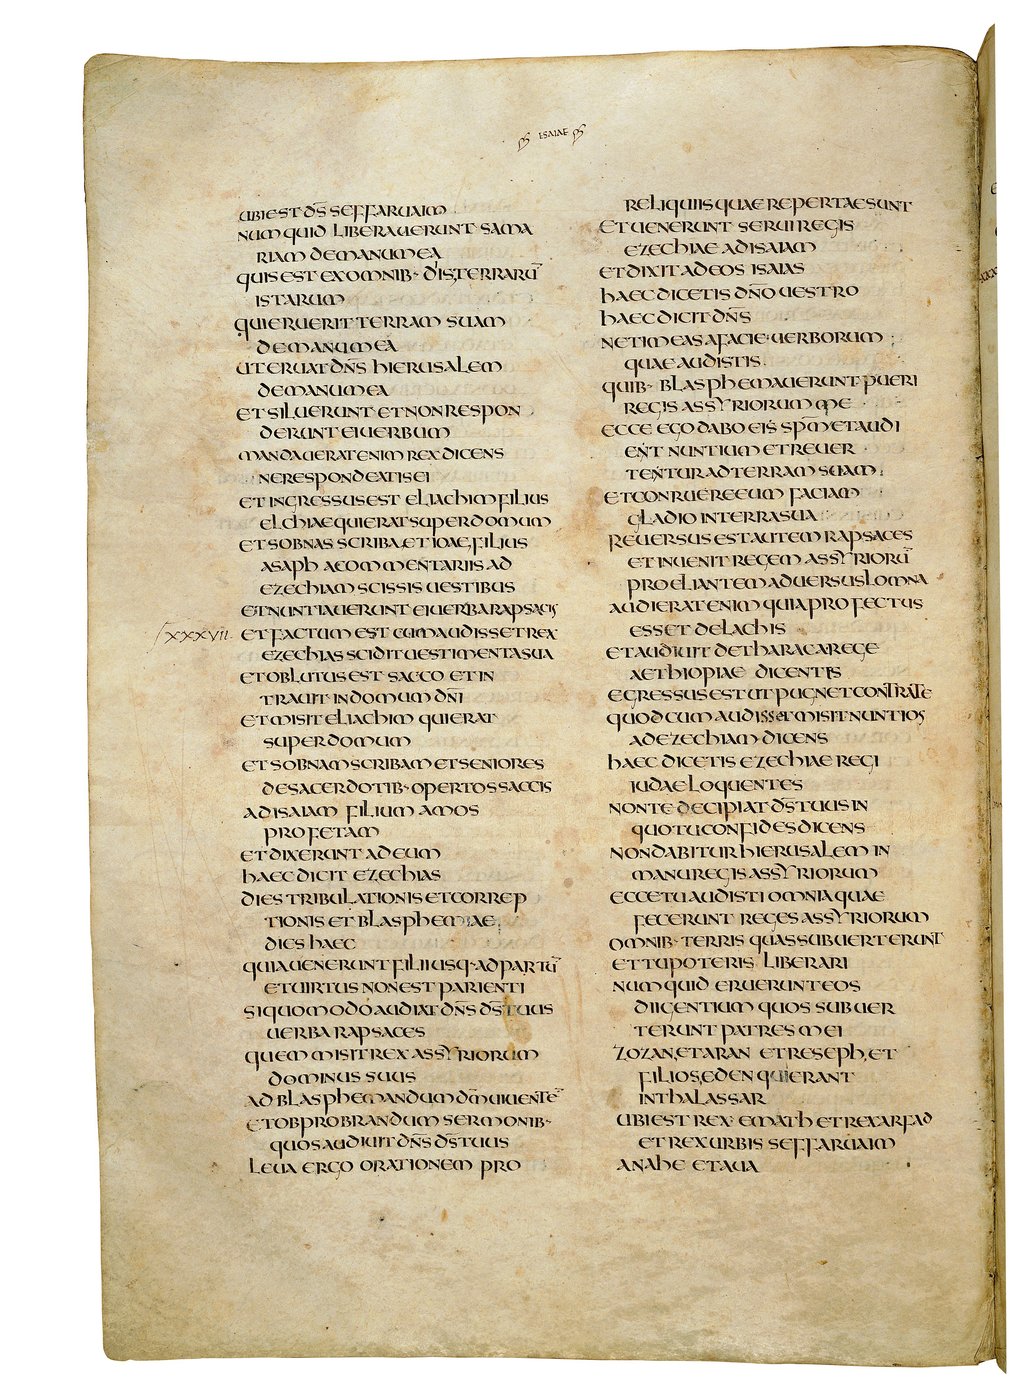 ISAIAE
UBI EST D̅S̅ SEFFARUAIM
NUMQUID LIBERAUERUNT SAMA
RIAM DE MANU MEA
QUIS EST EX OMNIB· DIIS TERRARŪ
ISTARUM
QUI ERUERIT TERRAM SUAM
DE MANU MEA
UT ERUAT D̅N̅S̅ HIERUSALEM
DE MANU MEA
ET SILUERUNT ET NON RESPON
DERUNT EI UERBUM
MANDAUERAT ENIM REX DICENS
NE RESPONDEATIS EI
ET INGRESSUS EST ELIACHIM FILIUS
ELCHIAE QUI ERAT SUPER DOMUM
ET SOBNAS SCRIBA ET IOAE FILIUS
ASAPH A COMMENTARIIS AD
EZECHIAM SCISSIS UESTIBUS
ET NUNTIAUERUNT EI UERBA RAPSACIS
XXXVII ET FACTUM EST CUM AUDISSET REX
EZECHIAS SCIDIT UESTIMENTA SUA
ET OBLUTUS EST SACCO ET IN
TRAUIT IN DOMUM D̅N̅I̅
ET MISIT ELIACHIM QUI ERAT
SUPER DOMUM
ET SOBNAM SCRIBAM ET SENIORES
DE SACERDOTIB· OPERTOS SACCIS
AD ISAIAM FILIUM AMOS
PROFETAM
ET DIXERUNT AD EUM
HAEC DICIT EZECHIAS
DIES TRIBULATIONIS ET CORREP
TIONIS ET BLASPHEMIAE
DIES HAEC
QUIA UENERUNT FILII USQ· AD PARTŪ
ET UIRTUS NON EST PARIENTI
SI QUO MODO AUDIAT D̅N̅S̅ D̅S̅ TUUS
UERBA RAPSACES
QUEM MISIT REX ASSYRIORUM
DOMINUS SUUS
AD BLASPHEMANDUM D̅M̅ UIUENTĒ
ET OBPROBRANDUM SERMONIB·
QUOS AUDIUIT D̅N̅S̅ D̅S̅ TUUS
LEUA ERGO ORATIONEM PRO
RELIQUIIS QUAE REPERTAE SUNT
ET UENERUNT SERUI REGIS
EZECHIAE AD ISAIAM
ET DIXIT AD EOS ISAIAS
HAEC DICETIS D̅N̅O̅ UESTRO
HAEC DICIT D̅N̅S̅
NE TIMEAS A FACIE UERBORUM
QUAE AUDISTIS
QUIB· BLASPHEMAUERUNT PUERI
REGIS ASSYRIORUM ME
ECCE EGO DABO EIS S̅P̅M̅ ET AUDI
ENT NUNTIUM ET REUER
TENTUR AD TERRAM SUAM
ET CONRUERE EUM FACIAM
GLADIO IN TERRA SUA
REUERSUS EST AUTEM RAPSACES
ET INUENIT REGEM ASSYRIORŪ
PROELIANTEM ADUERSUS LOMNA
AUDIERAT ENIM QUIA PROFECTUS
ESSET DE LACHIS
ET AUDIUIT DE THARACA REGE
AETHIOPIAE DICENTES
EGRESSUS EST UT PUGNET CONTRA TE
QUOD CUM AUDISSET MISIT NUNTIOS
AD EZECHIAM DICENS
HAEC DICETIS EZECHIAE REGI
IUDAE LOQUENTES
NON TE DECIPIAT D̅S̅ TUUS IN
QUO TU CONFIDES DICENS
NON DABITUR HIERUSALEM IN
MANU REGIS ASSYRIORUM
ECCE TU AUDISTI OMNIA QUAE
FECERUNT REGES ASSYRIORUM
OMNIB· TERRIS QUAS SUBUERTERUNT
ET TU POTERIS LIBERARI
NUMQUID ERUERUNT EOS
DII GENTIUM QUOS SUBUER
TERUNT PATRES MEI
ZOZAN ET ARAN ET RESEPH ET
FILIOS EDEN QUI ERANT
IN THALASSAR
UBI EST REX EMATH ET REX ARFAD
ET REX URBIS SEFFARUAIM
ANAHE ET AUA